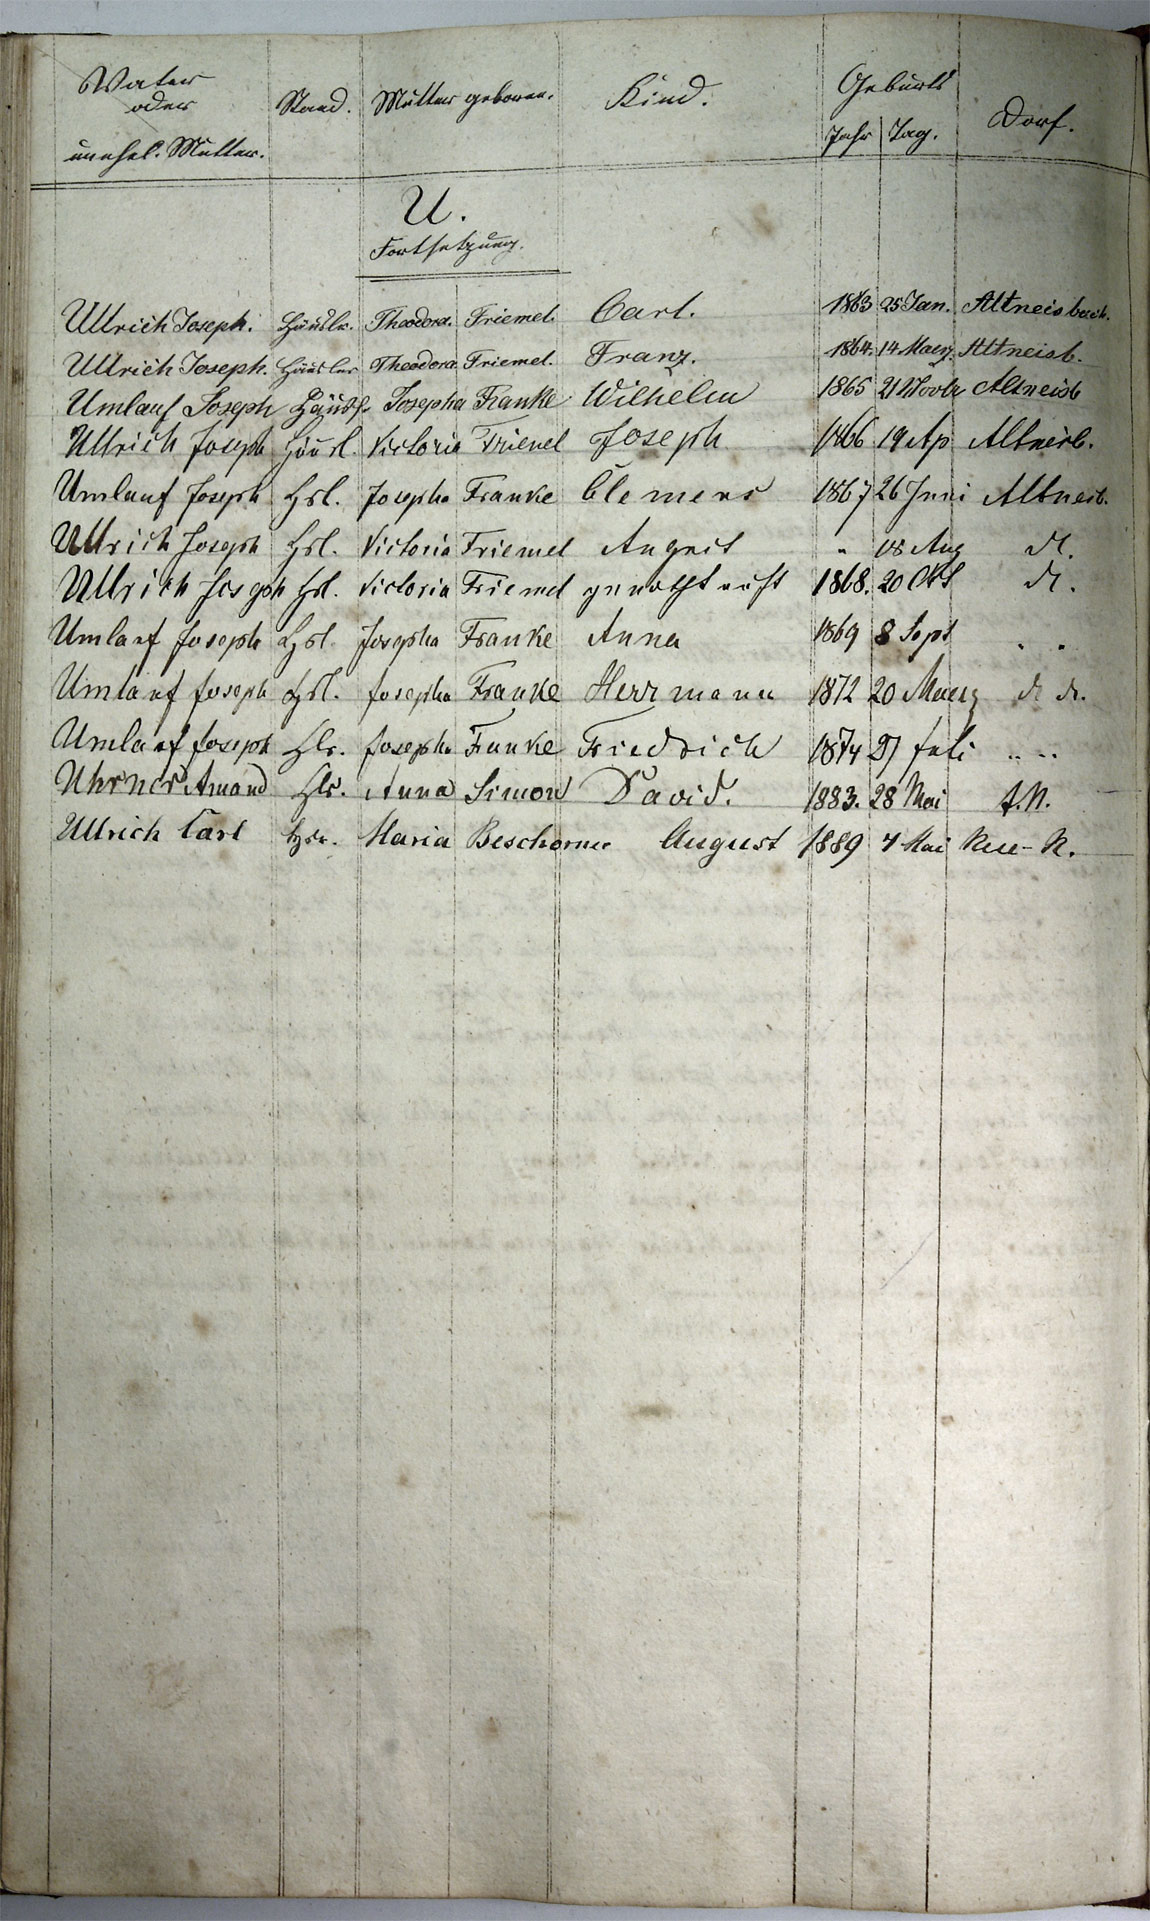 Vater oder unehel. Mutter. Stand. Mutter geborene. Kind. Geburts Jahr Tag. Dorf.
U.
Fortsetzung.
Ullrich Joseph. Häusler. Theodora. Friemel. Carl. 1863 25 Jan. Altneisbach.
Ullrich Joseph. Häusler Theodora Friemel. Franz. 1864. 14 Maerz. Altneisb.
Umlauf Joseph Häusl. Josepha Franke Wilhelm 1865 21 Novbr Altneisb
Ullrich Joseph Häusl. Victoria Friemel Joseph 1866 19 Ap Altneisb.
Umlauf Joseph Hsl. Josepha Franke Clemens 1867 26 Juni Altneisb.
Ullrich Joseph Hsl. Victoria Friemel August " 18 Aug
Ullrich Joseph Hsl. Victoria Friemel 1868. 20 Okt
Umlauf Joseph Hsl. Josepha Franke Anna 1869 8 Sept . .
Umlauf Joseph Hsl. Josepha Franke Herrmann 1872 20 Maerz
Umlauf Joseph Hlr. Josepha Franke Friedrich 1874 27 Juli .. ..
Uhrner Amand Hlr. Anna Simon David. 1883. 28 Mai A.N.
Ullrich Carl Hsr. Maria Beschorner August 1889 4 Mai Neu-N.